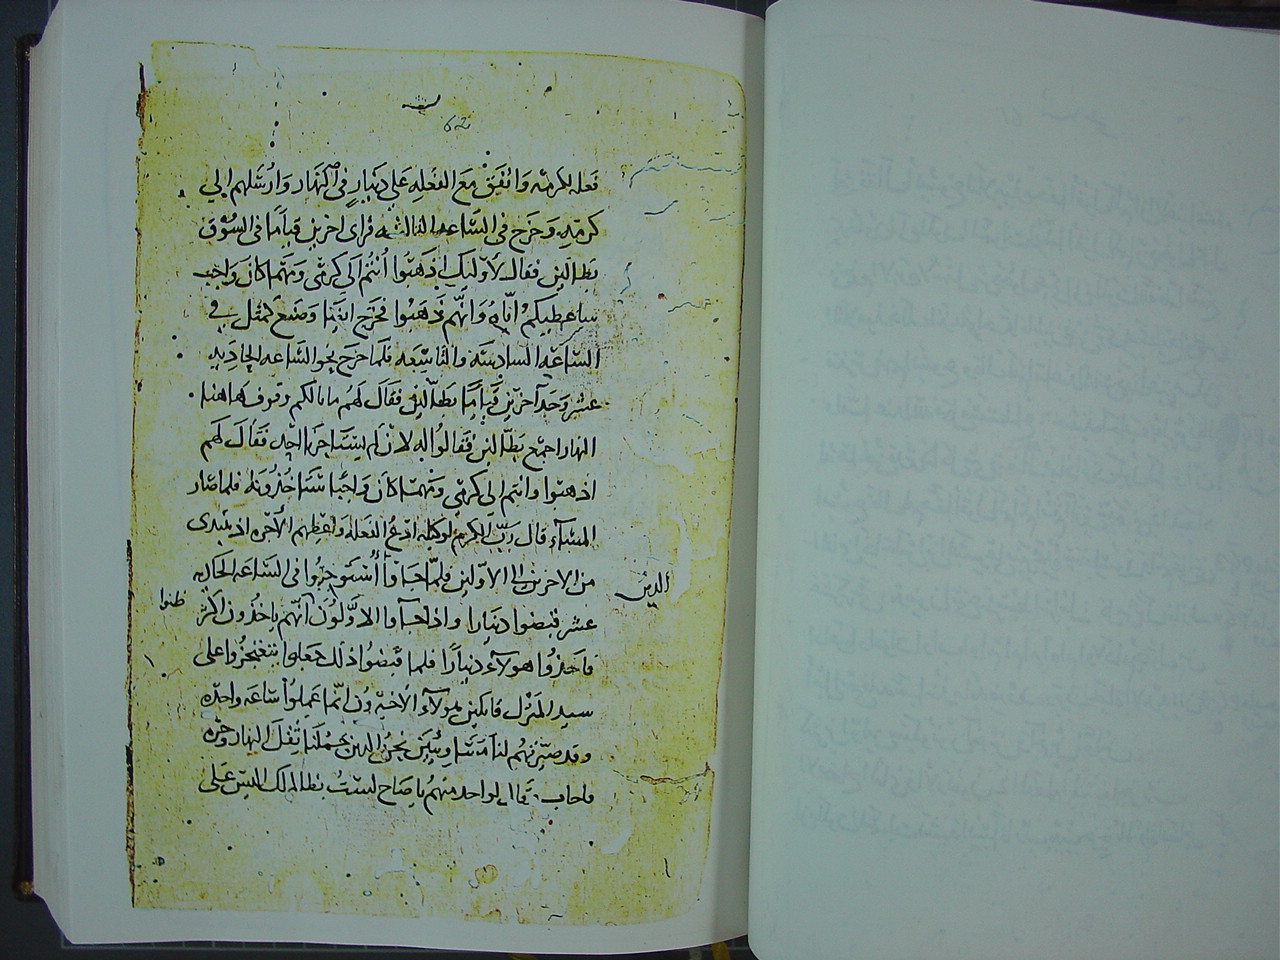 62
فعله لكرمه واتفق مع الفعله على دينار في النهار وارسلهم الي
كرمه وخرج في الساعه الثالثه فراى اخرين قياما في السوق
بطالين فقال لاوليك اذهبوا أنتم الى كرمي ومهما كان واجب
باعطيكم اياه وانهم ذهبوا فخرج ايضا وصنع كمثل في
الساعه السادسه والتاسعه فلما خرج نحو الساعه الحاديه
عشر وجد آخرين قياما بطالين فقال لهم ما بالكم وقوف هاهنا
النهار اجمع بطالين فقالوا له لان لم يستاجرنا احد فقال لهم
اذهبوا وانتم الي كرمي ومهما كان واجبا ستاخذونه فلما صار
المسآء قال رب الكرم لوكيله ادع الفعله واعطهم الأجره اذ تبتدى
من الاخرين الى الاولين فلما جاوا أستوجروا في الساعه الحاديه
الدين
عشر قبضوا دينارا واذ جآوا الاولون انهم ياخذون اكثر
ظنوا
فاخذوا هولآء دينارا فلما قبضوا ذلك جعلوا يتقمقموا على
سيد المنزل قايلين هولآء الأخيرون انما عملوا ساعه واحده
وقد صيرتهم لنا مساويين نحن الدين حملنا ثقل النهار وحره
فاجاب وقال لواحد منهم يا صاح لست بظالمك اليس على